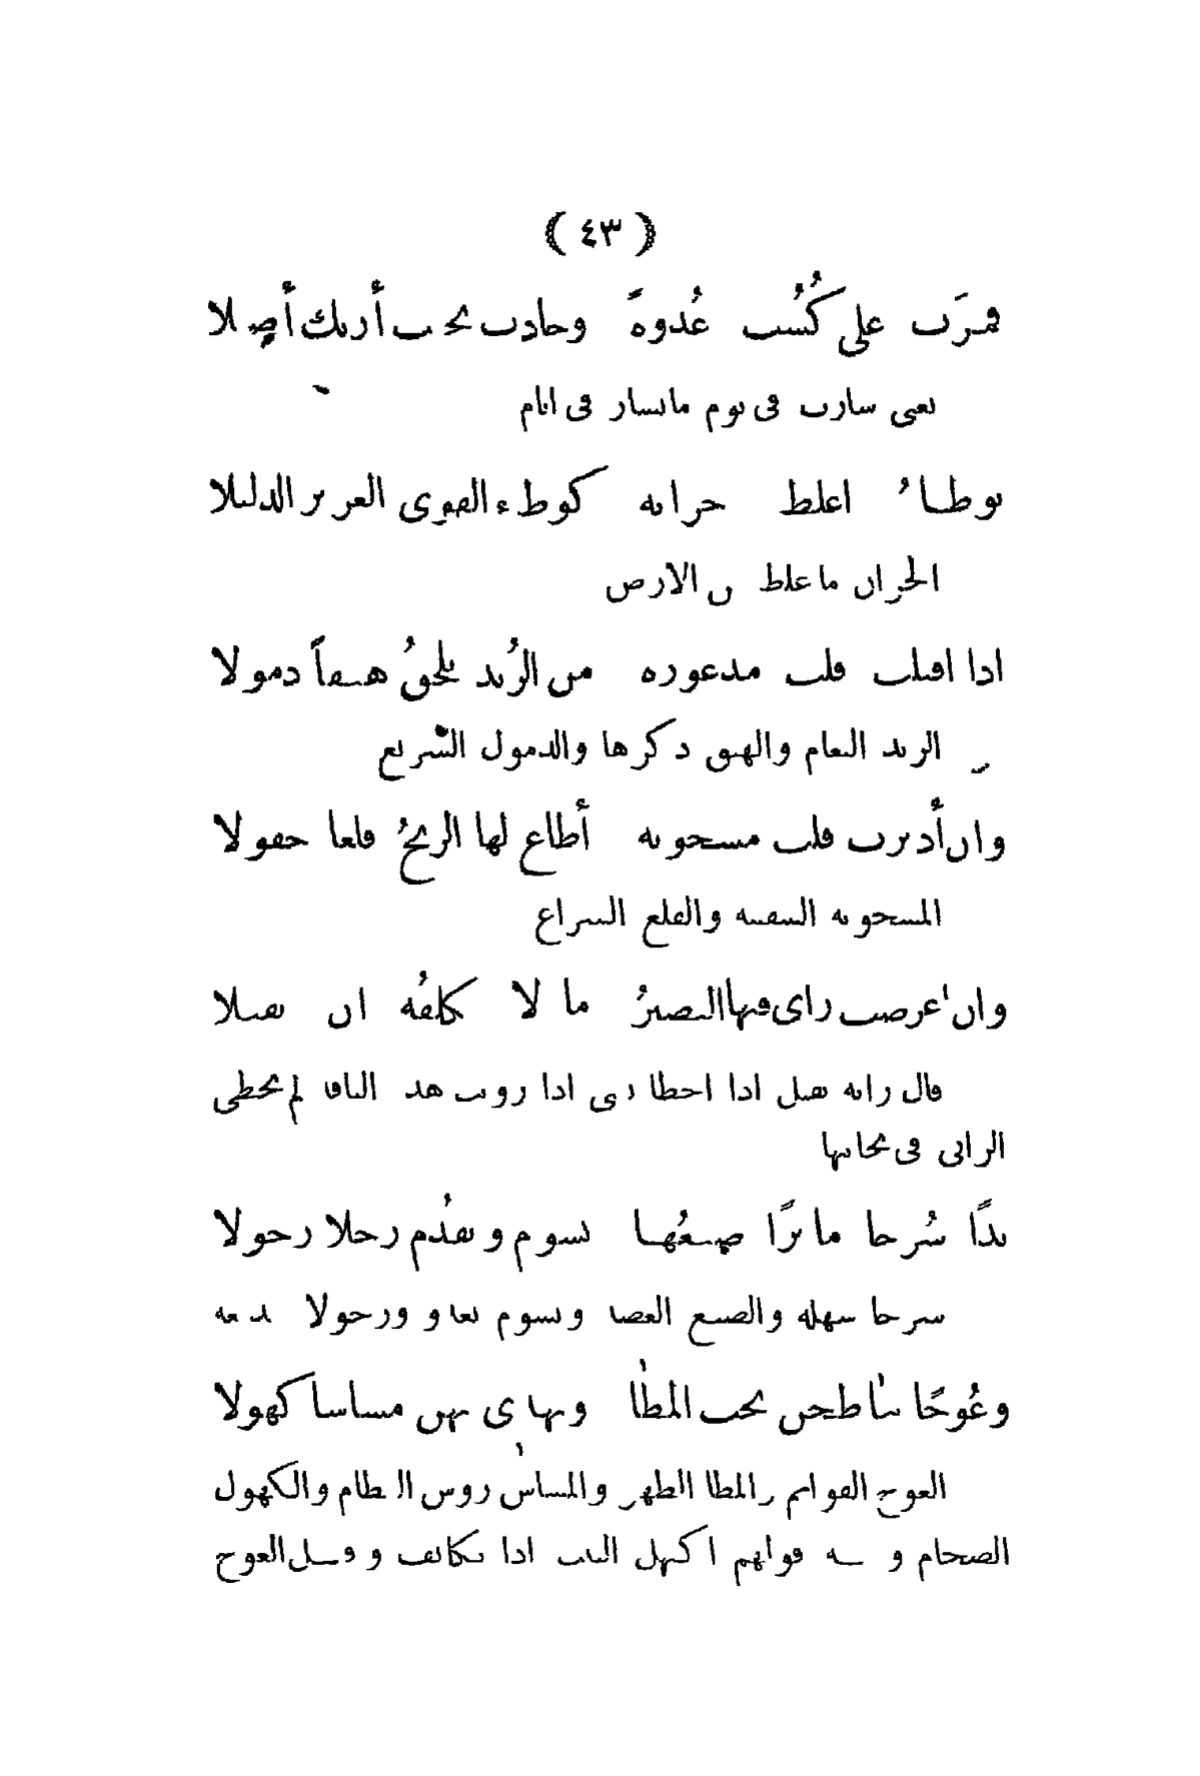 ( ٤٣ )
فمرَّت على كُشُب غُدوةً وحاذت بجنب أريك أصيلا
يعنى سارت فى يوم مايسار فى ايام
توطأ اغلظ حزانه كوطء القوى العزيز الذليلا
الحزان ما غلظ من الارض
اذا اقبلت قلت مذعورة من الرُبد يلحقُ هيقاً ذمولا
الربد النعام والهيق ذكرها والذمول السريع
وان أدبرت قلت مشحونة أطاع لها الريحُ قلعا جفولا
المشحونة السفينة والقلع الشراع
وان اعرضت راى فيها البصيرُ ما لا تكلفُه ان يفيلا
قال رايه يفيل اذا اخطا اى اذا رويت هذ الناقة لم يخطى
الرائى فى نجابتها
يدًا سُرحا مائرًا ضبعُها تسوم وتقدُم رجلا زجولا
سرحا سهلة والضبع العضد وتسوم وزجولا
وعُوجًا تناطحن تحت المطا وتهدى بهن مشاشا كهولا
العوج القوائم والمطا الظهر والمشاش روس العظام والكهول
الضخام ومنه قولهم اكتهل النبت اذا تكاثف وقيل العوج